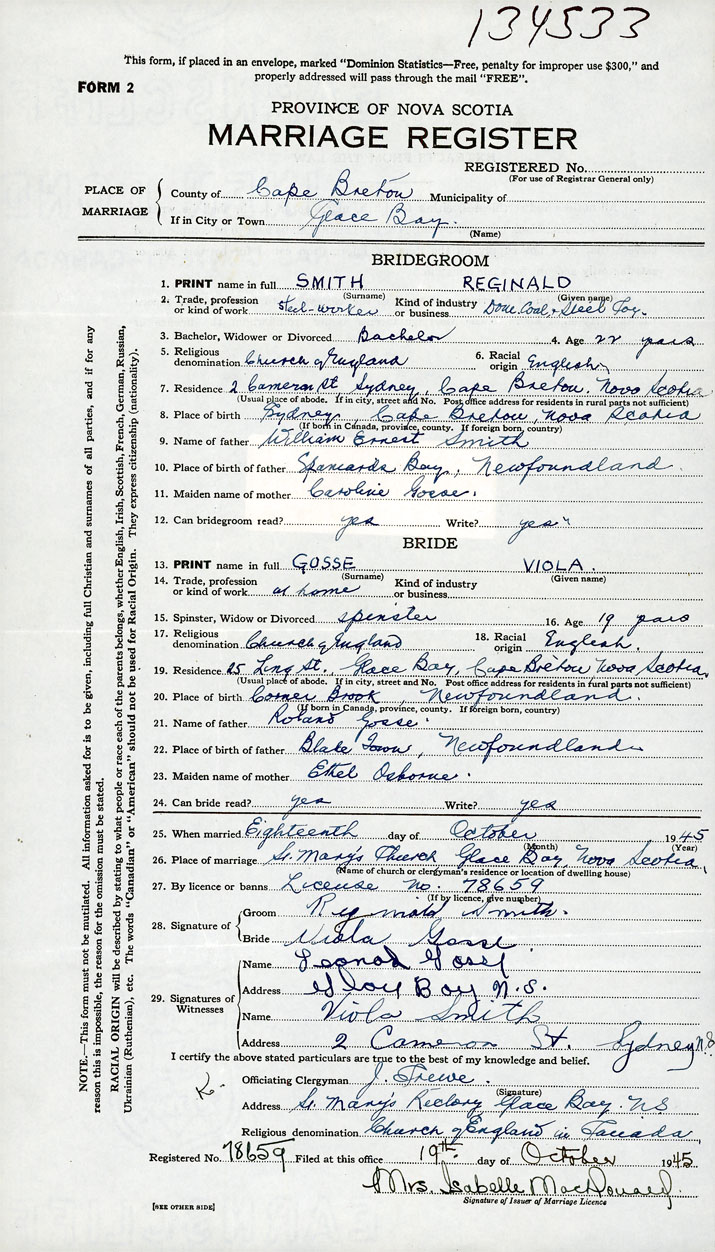 134533
This form, if placed in an envelope, marked "Dominion Statistics—Free, penalty for improper use $300," and
properly addressed will pass through the mail "FREE".
FORM 2
PROVINCE OF NOVA SCOTIA
MARRIAGE REGISTER
REGISTERED No.
(For use of Registrar General only)
PLACE OF MARRIAGE
County of Cape Breton Municipality of
If in City or Town Glace Bay.
(Name)
BRIDEGROOM
1. PRINT name in full SMITH REGINALD
(Surname) (Given name)
2. Trade, profession or kind of work steel-worker Kind of industry or business Dom. Coal & Steel Foy.
3. Bachelor, Widower or Divorced Bachelor 4. Age 22 years
5. Religious denomination Church of England 6. Racial origin English
7. Residence 2 Cameron St Sydney, Cape Breton, Nova Scotia
(Usual place of abode. If in city, street and No. Post office address for residents in rural parts not sufficient)
8. Place of birth Sydney, Cape Breton, Nova Scotia
(If born in Canada, province, county. If foreign born, country)
9. Name of father William Ernest Smith
10. Place of birth of father Spaniard's Bay, Newfoundland.
11. Maiden name of mother Caroline Gosse.
12. Can bridegroom read? yes Write? yes"
BRIDE
13. PRINT name in full GOSSE VIOLA.
(Surname) (Given name)
14. Trade, profession or kind of work at home Kind of industry or business
15. Spinster, Widow or Divorced spinster 16. Age 19 years
17. Religious denomination Church of England 18. Racial origin English.
19. Residence 25 Ling St., Glace Bay, Cape Breton, Nova Scotia.
(Usual place of abode. If in city, street and No. Post office address for residents in rural parts not sufficient)
20. Place of birth Corner Brook, Newfoundland.
(If born in Canada, province, county. If foreign born, country)
21. Name of father Roland Gosse.
22. Place of birth of father Blake Town, Newfoundland
23. Maiden name of mother Ethel Osborne.
24. Can bride read? yes Write? yes
25. When married Eighteenth day of October 1945
(Month) (Year)
26. Place of marriage St. Mary's Church, Glace Bay, Nova Scotia,
(Name of church or clergyman's residence or location of dwelling house)
27. By licence or banns License No. 78659
(If by licence, give number)
28. Signature of
Groom Reginald Smith.
Bride Viola Gosse
29. Signatures of Witnesses
Name Leonard Gosse
Address Glace Bay N.S.
Name Viola Smith
Address 2 Cameron St. Sydney N.S
I certify the above stated particulars are true to the best of my knowledge and belief.
Officiating Clergyman J. Trewe.
(Signature)
Address St. Mary's Rectory Glace Bay. NS
Religious denomination Church of England in Canada,
Registered No. 78659 Filed at this office 19th day of October 1945
Mrs. Isabelle MacDonald.
Signature of Issuer of Marriage Licence
[SEE OTHER SIDE]
NOTE.—This form must not be mutilated. All information asked for is to be given, including full Christian and surnames of all parties, and if for any
reason this is impossible, the reason for the omission must be stated.
RACIAL ORIGIN will be described by stating to what people or race each of the parents belongs, whether English, Irish, Scottish, French, German, Russian,
Ukrainian (Ruthenian), etc. The words "Canadian" or "American" should not be used for Racial Origin. They express citizenship (nationality).